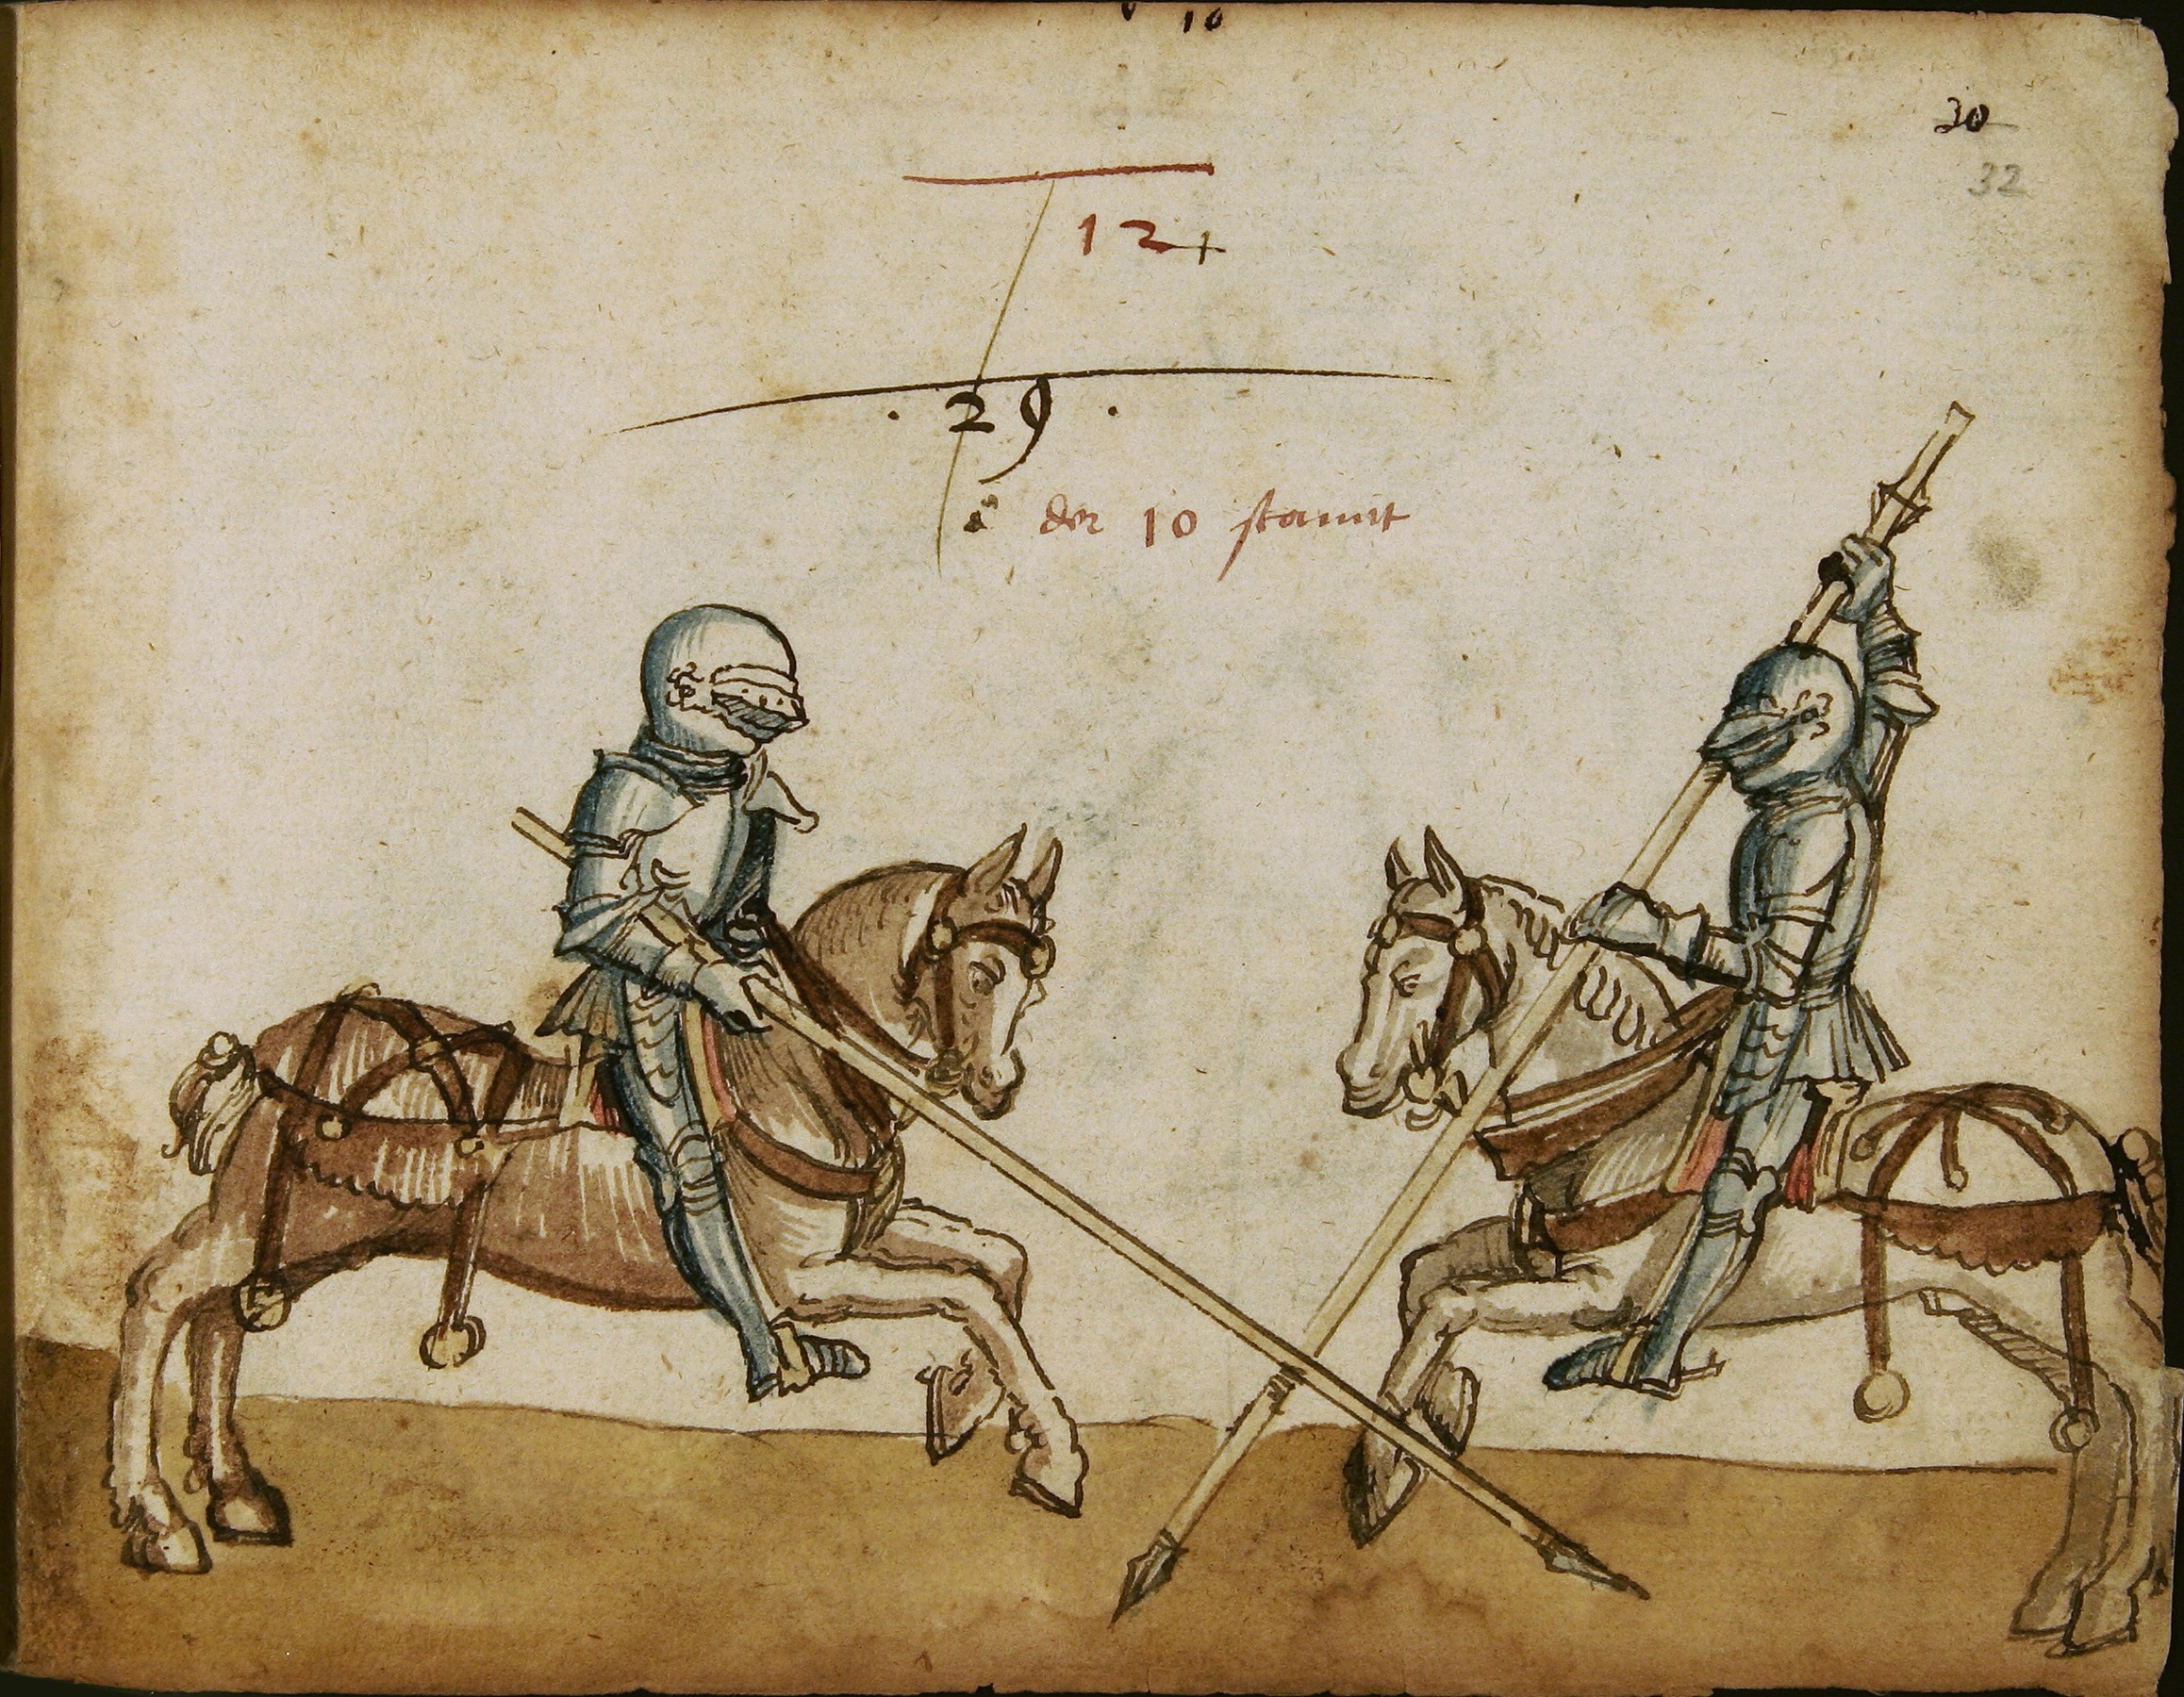 10
30
32
121
· 29 ·
der 10 stannt